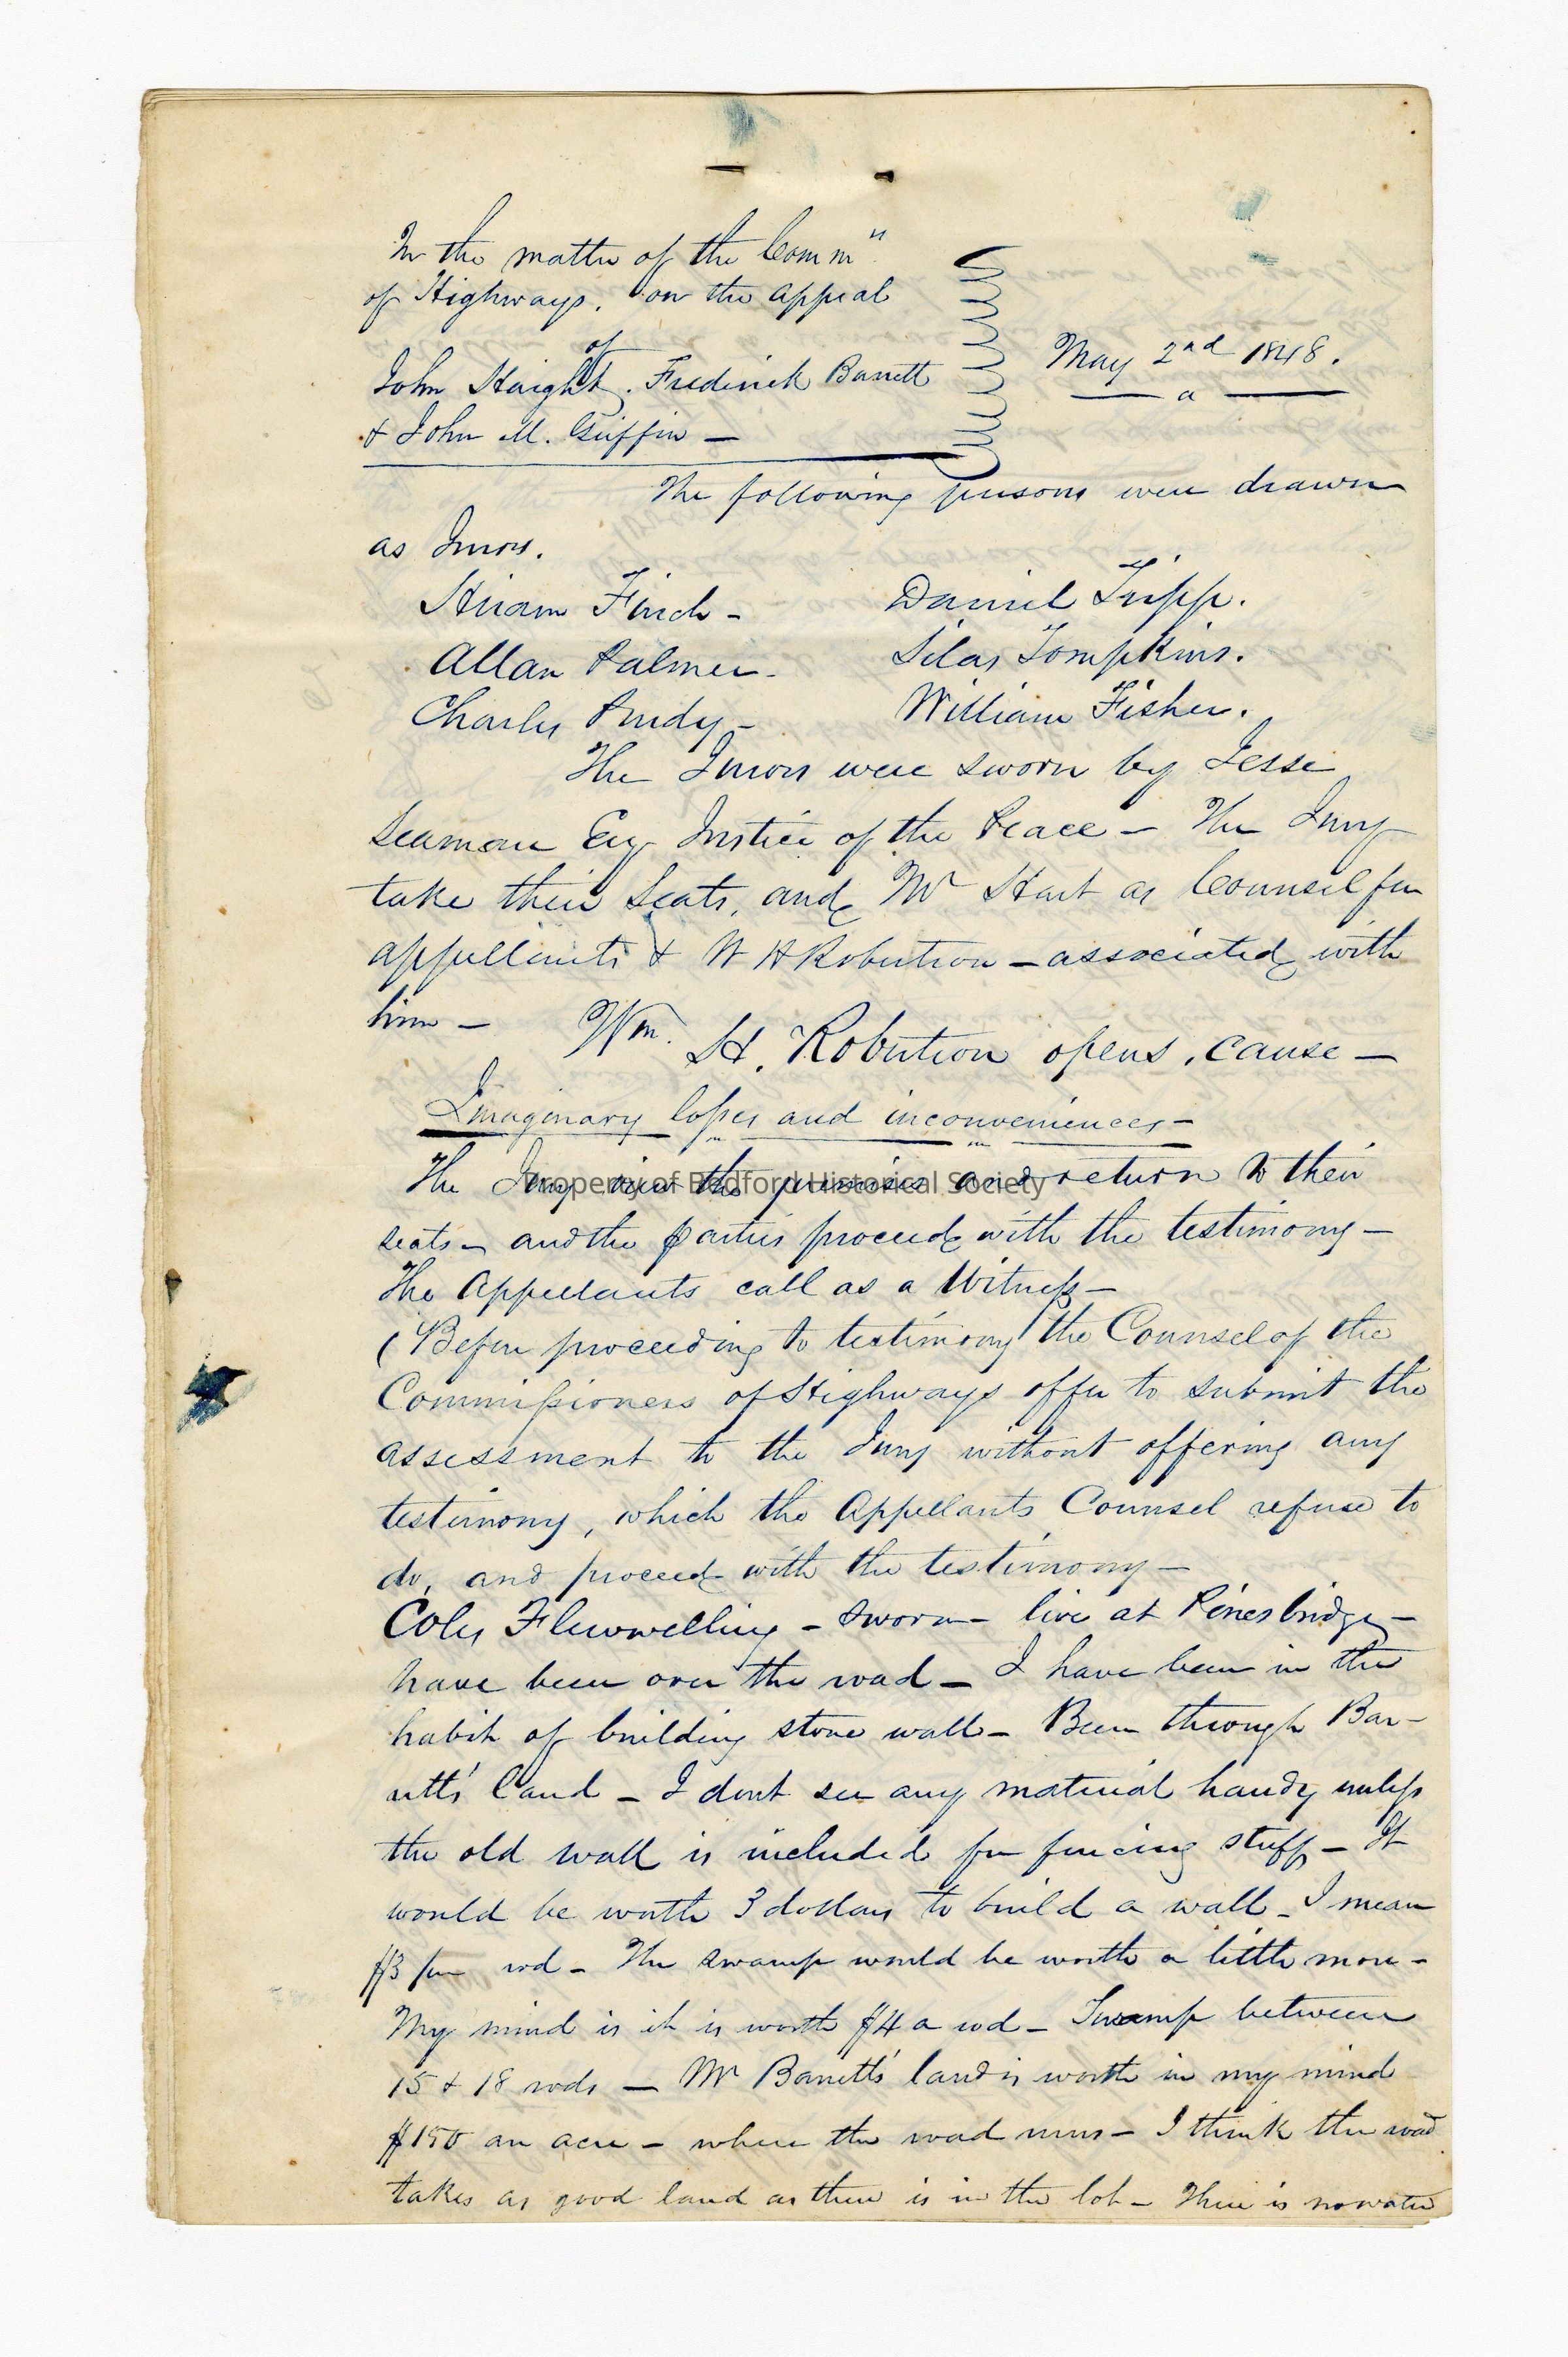 In the matter of the Commrs
of Highways. on the appeal
of
John Haight. Frederick Barrett
& John M. Griffin —
May 2nd 1848.
a
The following persons were drawn
as Jurors.
Hiram Finch - Daniel Tripp.
Allan Palmer - Silas Tompkins.
Charles Purdy - William Fisher.
The Jurors were sworn by Jesse
Seaman Esq Justice of the Peace — The Jury
take their Seats, and Mr Hart as Counsel for
appellants & W H Robertson — associated with
him — Wm. H. Robertson opens, cause —
Imaginary losses and inconveniences —
The Jury view the premises and return to their
Property of Bedford Historical Society
seats — and the parties proceed with the testimony —
The Appellants call as a Witness —
(Before proceeding to testimony the Counsel of the
Commissioners of Highways offer to submit the
assessment to the Jury without offering any
testimony, which the Appellants Counsel refuse to
do, and proceed with the testimony —
Coles Flewwelling - sworn - live at Pinesbridge —
have been over the road — I have been in the
habit of building stone wall — Been through Bar-
retts' land — I dont see any material handy unless
the old wall is included for fencing stuff — It
would be worth 3 dollars to build a wall — I mean
$3 per rod — The swamp would be worth a little more —
My mind is it is worth $4 a rod — Swamp between
15 & 18 rods — Mr Barretts' land is worth in my mind
$150 an acre — where the road runs — I think the road
takes as good land as there is in the lot — There is no water